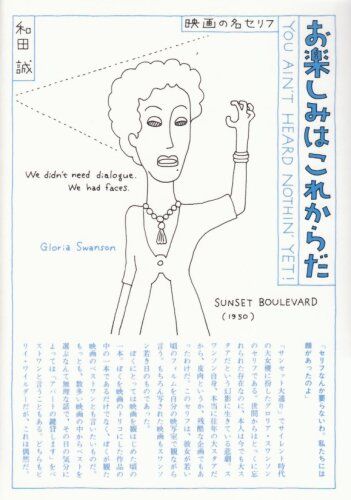 お楽しみはこれからだ
YOU AIN'T HEARD NOTHIN' YET!
映画の名セリフ
和田誠
We didn't need dialogue.
We had faces.
Gloria Swanson
SUNSET BOULEVARD
(1950)
「セリフなんか要らないわ。私たちには
顔があったのよ」
『サンセット大通り』でサイレント時代
の大女優に扮したグロリア・スワンソン
のセリフである。世間からはとっくに忘
れられた存在なのに、本人は今でも大ス
タアだという幻影に生きている悲劇。ス
ワンソン自身、本当に往年の大スタアだ
から、皮肉というか、残酷な企画でもあ
ったわけだ。このセリフは、彼女が若い
頃のフィルムを自分の映写室で観ながら
言う。もちろん写された映画もスワンソ
ン若き日のものであった。
ぼくにとっては映画を観はじめた頃の
一本。ぼくを映画のトリコにした作品の
中の一本であるだけでなく、ぼくが観た
映画のベストワンとも言いたいものだ。
もっとも、数多い映画の中からベストを
選ぶなんて無理な話で、その日の気分に
よっては『アパートの鍵貸します』をベ
ストワンと言うこともある。どちらもビ
リイ・ワイルダーだが、これは偶然だ。